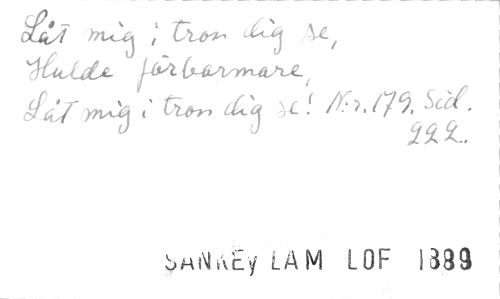 Låt mig i tron dig se,
Hulde förbarmare,
Låt mig i tron dig se! N:r. 179. Sid.
222.
SANKEY LAM LOF 1889